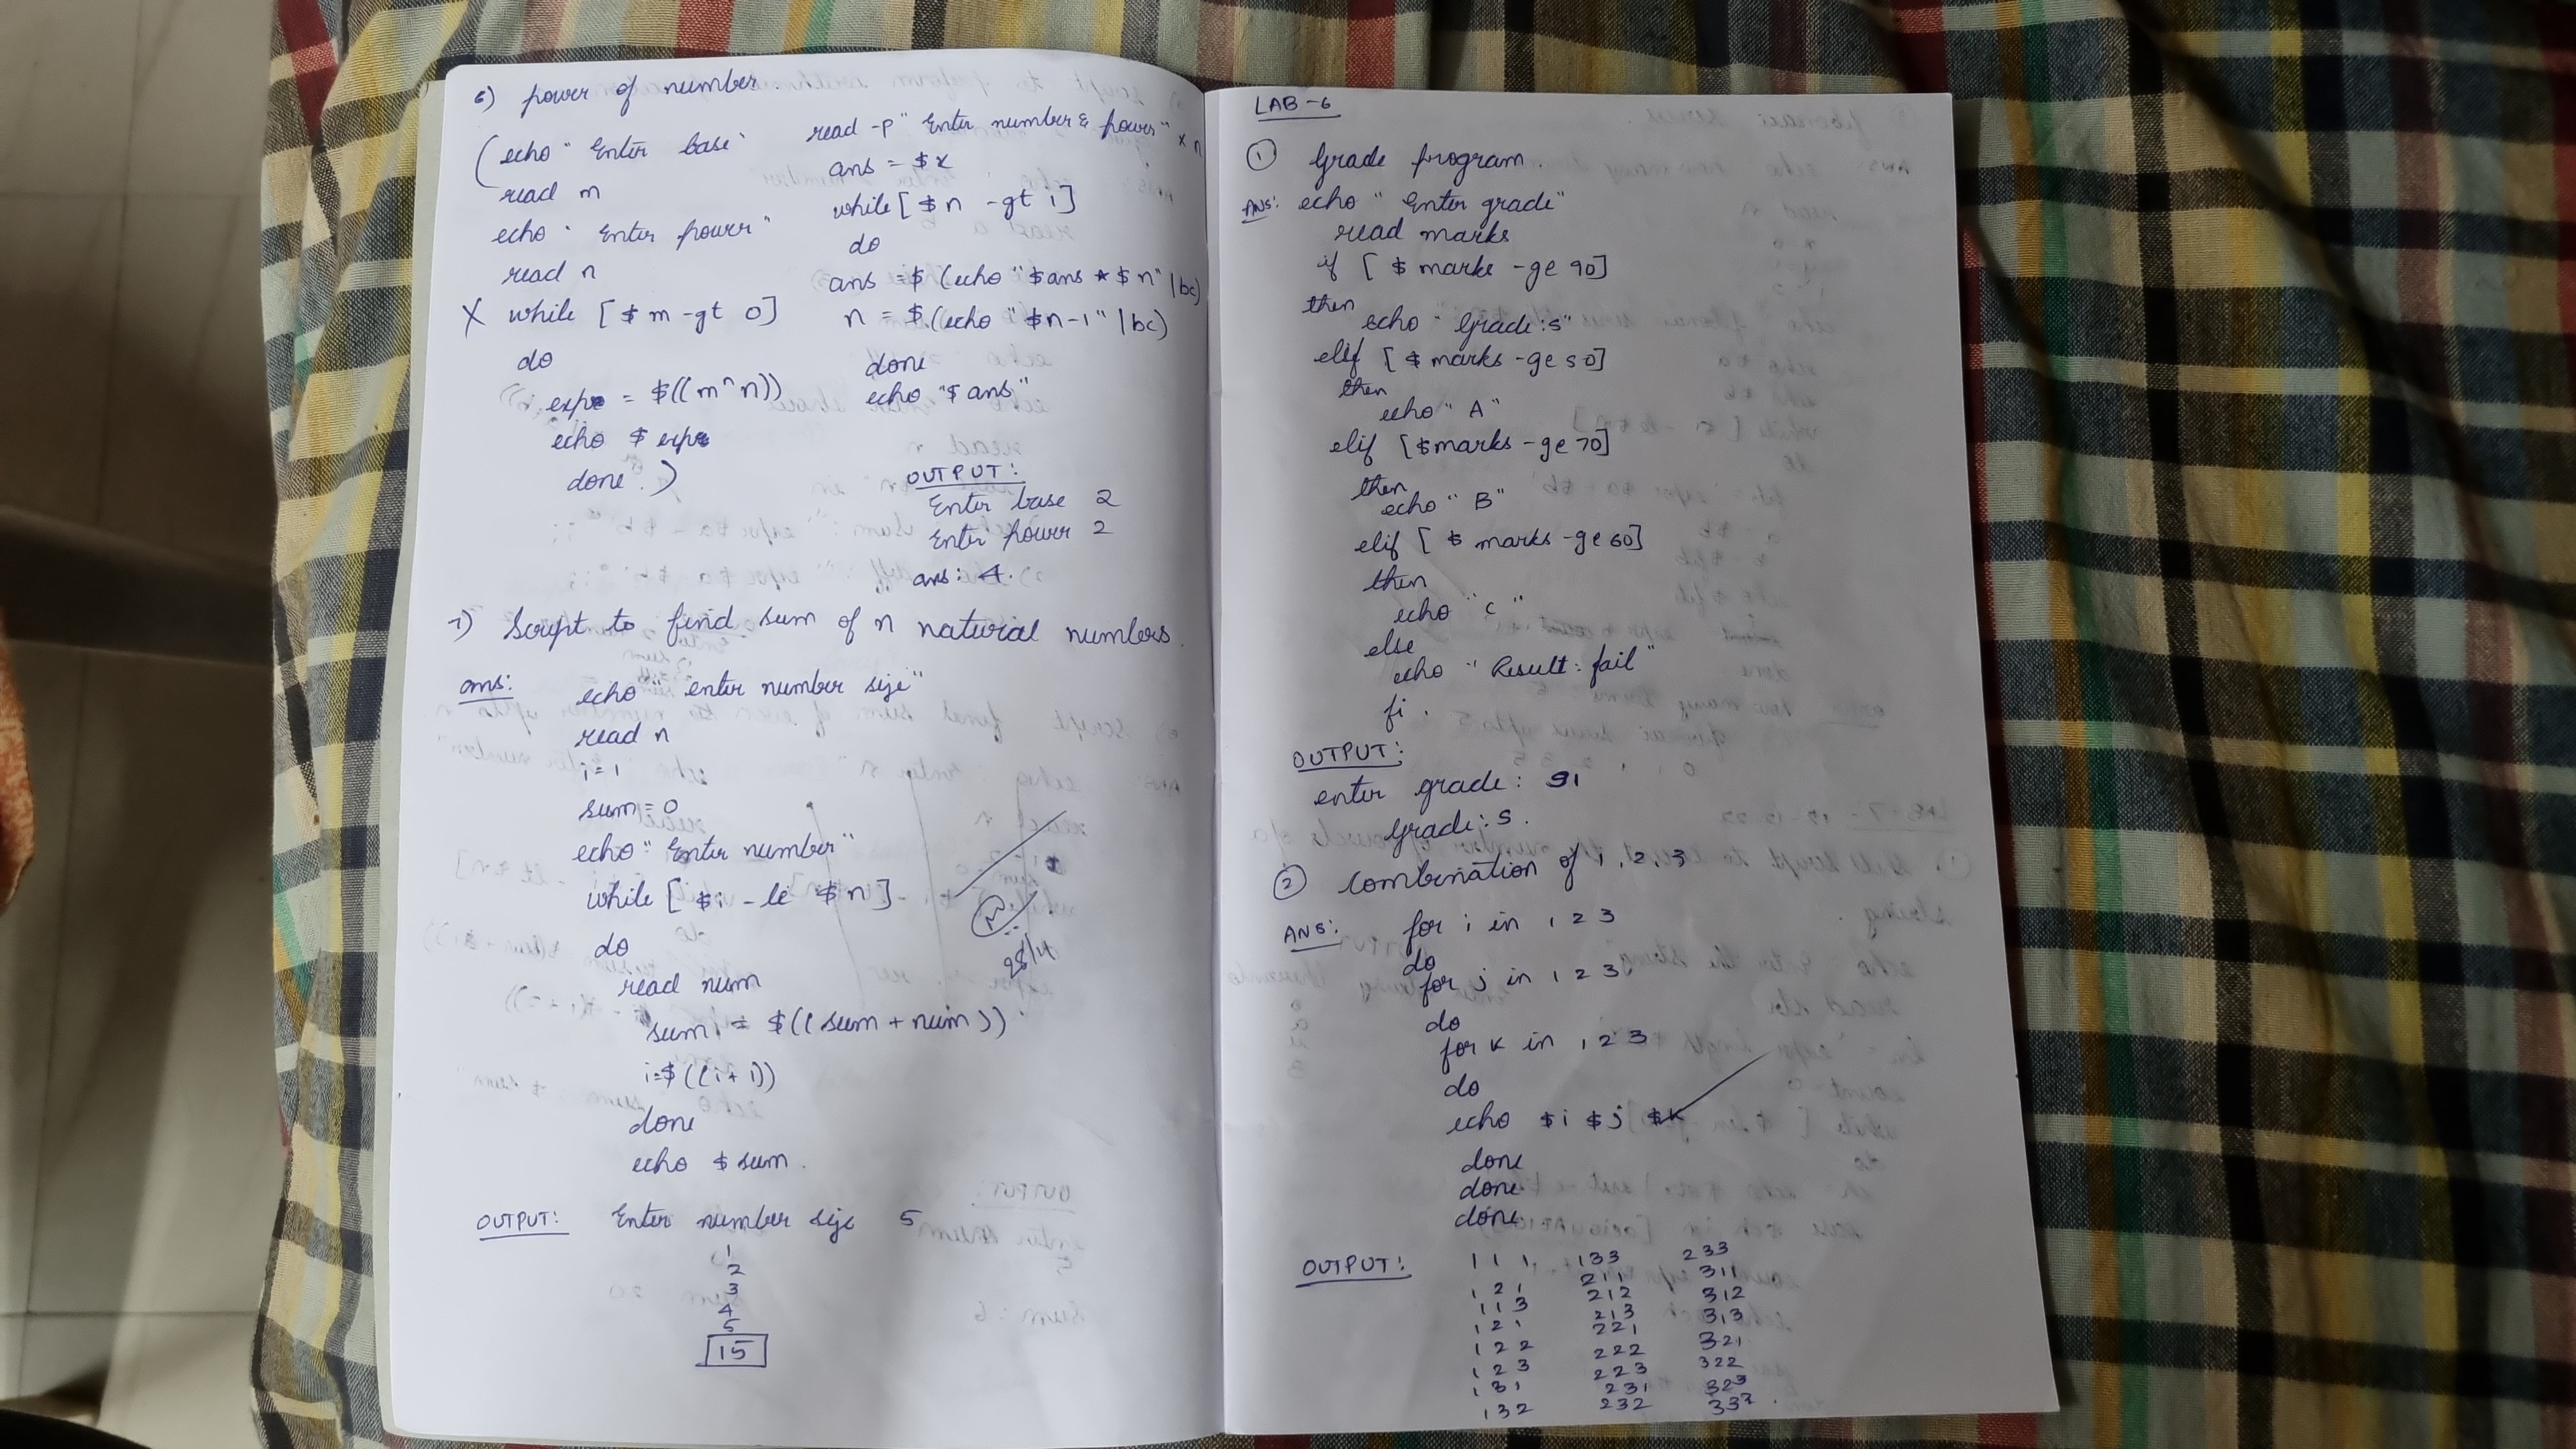 6) power of number
(echo " Enter base"
read m
echo " Enter power"
read n
X while [ $ m -gt 0]
do
expo = $((m^n))
echo $ expo
done )
read -p " Enter number & power" x n
ans = $x
while [ $n -gt 1]
do
ans = $ (echo "$ans * $n" | bc)
n = $ (echo "$n-1" | bc)
done
echo "$ans"
OUTPUT:
Enter base 2
Enter power 2
ans: 4.
7) Script to find sum of n natural numbers.
ans: echo " enter number size"
read n
i=1
sum=0
echo " Enter number"
while [ $i -le $n]
do
read num
sum = $((sum+num))
i=$((i+1))
done
echo $ sum.
OUTPUT:
Enter number size 5
1
2
3
4
5
15
LAB-6
① Grade program.
ANS: echo " Enter grade"
read marks
if [ $ marks -ge 90]
then
echo " Grade: s"
elif [ $ marks -ge 80]
then
echo " A"
elif [ $marks -ge 70]
then
echo " B"
elif [ $ marks -ge 60]
then
echo " C "
else
echo " Result: fail"
fi
OUTPUT:
enter grade: 91
Grade: S.
② Combination of 1, 2, 3
ANS: for i in 1 2 3
do
for j in 1 2 3
do
for k in 1 2 3
do
echo $i $j $k
done
done
done
OUTPUT:
1 1 1 133 233
1 2 1 211 311
1 1 3 212 312
1 2 1 213 313
1 2 2 221 321
1 2 3 222 322
1 3 1 223 323
1 3 2 231 332
232